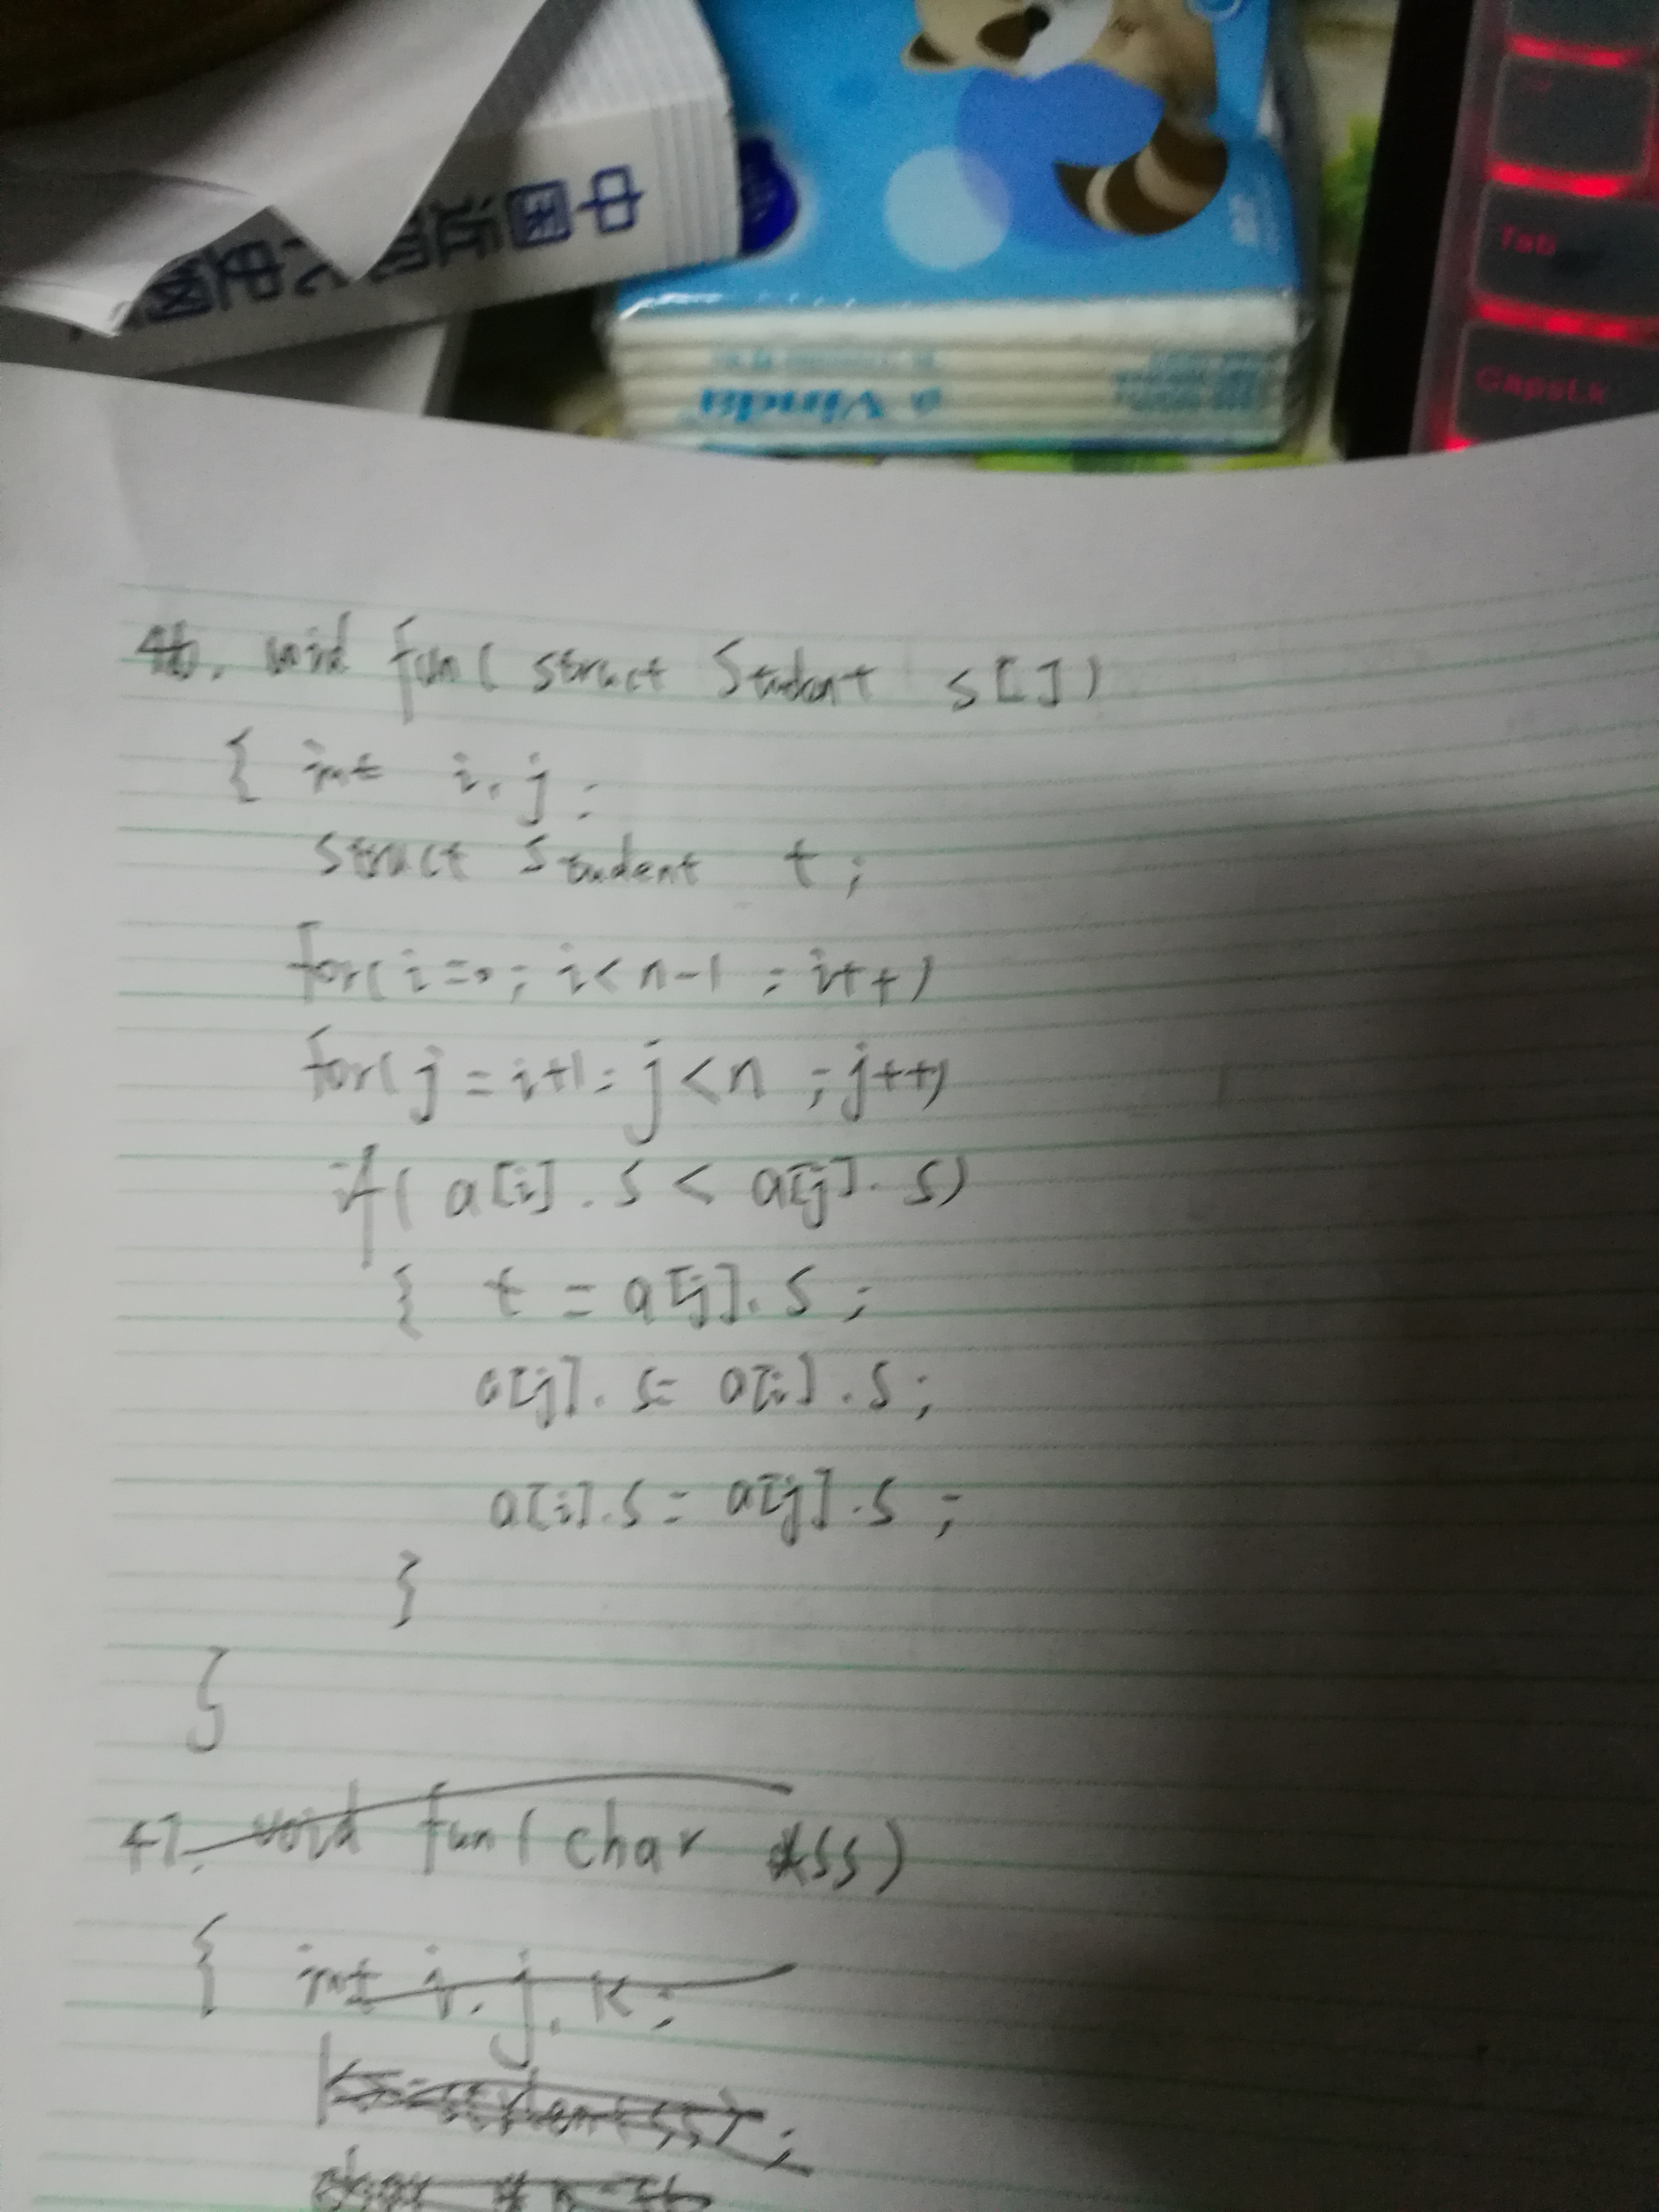 中国近现代史纲
Vinda
Tab
CapsLk
46. void fun( struct Student s[])
{ int i, j;
struct Student t;
for(i=0; i<n-1; i++)
for(j=i+1; j<n; j++)
if( a[i].s < a[j].s)
{ t = a[j].s;
a[j].s = a[i].s;
a[i].s = a[j].s;
}
}
47. void fun(char *ss)
{ int i, j, k;